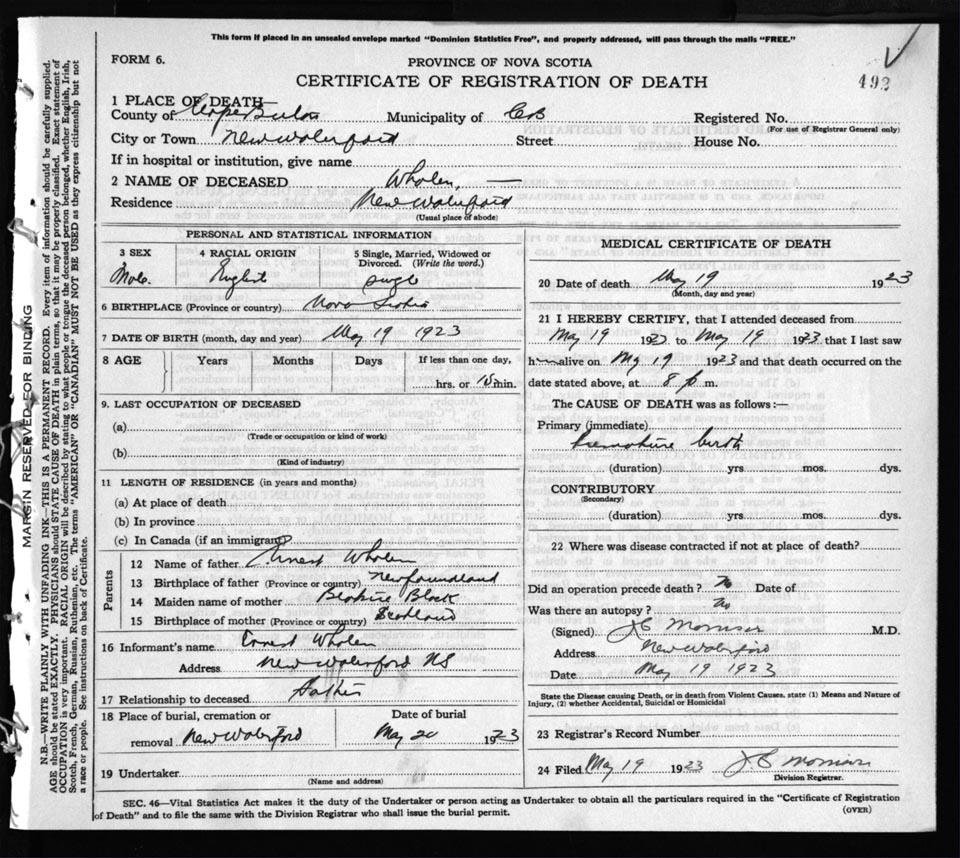 This form if placed in an unsealed envelope marked "Dominion Statistics Free", and properly addressed, will pass through the mails "FREE."
FORM 6.
PROVINCE OF NOVA SCOTIA
492
CERTIFICATE OF REGISTRATION OF DEATH
1 PLACE OF DEATH
County of Cape Breton Municipality of CB Registered No.
(For use of Registrar General only)
City or Town New Waterford Street House No.
If in hospital or institution, give name
2 NAME OF DECEASED Whalen, —
Residence New Waterford
(Usual place of abode)
PERSONAL AND STATISTICAL INFORMATION
3 SEX 4 RACIAL ORIGIN 5 Single, Married, Widowed or Divorced. (Write the word.)
Male English single
6 BIRTHPLACE (Province or country) Nova Scotia
7 DATE OF BIRTH (month, day and year) May 19 1923
8 AGE Years Months Days If less than one day,
hrs. or 15 min.
9. LAST OCCUPATION OF DECEASED
(a)
(Trade or occupation or kind of work)
(b)
(Kind of industry)
11 LENGTH OF RESIDENCE (in years and months)
(a) At place of death
(b) In province
(c) In Canada (if an immigrant)
Parents
12 Name of father Ernest Whalen
13 Birthplace of father (Province or country) Newfoundland
14 Maiden name of mother Black
15 Birthplace of mother (Province or country) Scotland
16 Informant's name Ernest Whalen
Address New Waterford NS
17 Relationship to deceased Father
18 Place of burial, cremation or removal New Waterford
Date of burial
May 20 1923
19 Undertaker
(Name and address)
MEDICAL CERTIFICATE OF DEATH
20 Date of death May 19 1923
(Month, day and year)
21 I HEREBY CERTIFY, that I attended deceased from
May 19 1923 to May 19 1923 that I last saw
him alive on May 19 1923 and that death occurred on the
date stated above, at 8 p m.
The CAUSE OF DEATH was as follows:—
Primary (immediate)
Premature birth
(duration) yrs. mos. dys.
CONTRIBUTORY
(Secondary)
(duration) yrs. mos. dys.
22 Where was disease contracted if not at place of death?
Did an operation precede death? No Date of
Was there an autopsy? no
(Signed) M.D.
Address New Waterford
Date May 19 1923
State the Disease causing Death, or in death from Violent Causes, state (1) Means and Nature of
Injury, (2) whether Accidental, Suicidal or Homicidal
23 Registrar's Record Number
24 Filed May 19 1923
Division Registrar.
SEC. 46—Vital Statistics Act makes it the duty of the Undertaker or person acting as Undertaker to obtain all the particulars required in the "Certificate of Registration
of Death" and to file the same with the Division Registrar who shall issue the burial permit.
(OVER)
MARGIN RESERVED FOR BINDING
N.B.—WRITE PLAINLY WITH UNFADING INK—THIS IS A PERMANENT RECORD. Every item of information should be carefully supplied.
AGE should be stated EXACTLY. PHYSICIANS should STATE CAUSE OF DEATH in plain terms, so that it may be properly classified. Exact statement of
OCCUPATION is very important. RACIAL ORIGIN will be described by stating to what people or tongue the deceased person belonged, whether English, Irish,
Scotch, French, German, Russian, Ruthenian, etc. The terms "AMERICAN" OR "CANADIAN" MUST NOT BE USED as they express citizenship but not
a race or people. See instructions on back of Certificate.